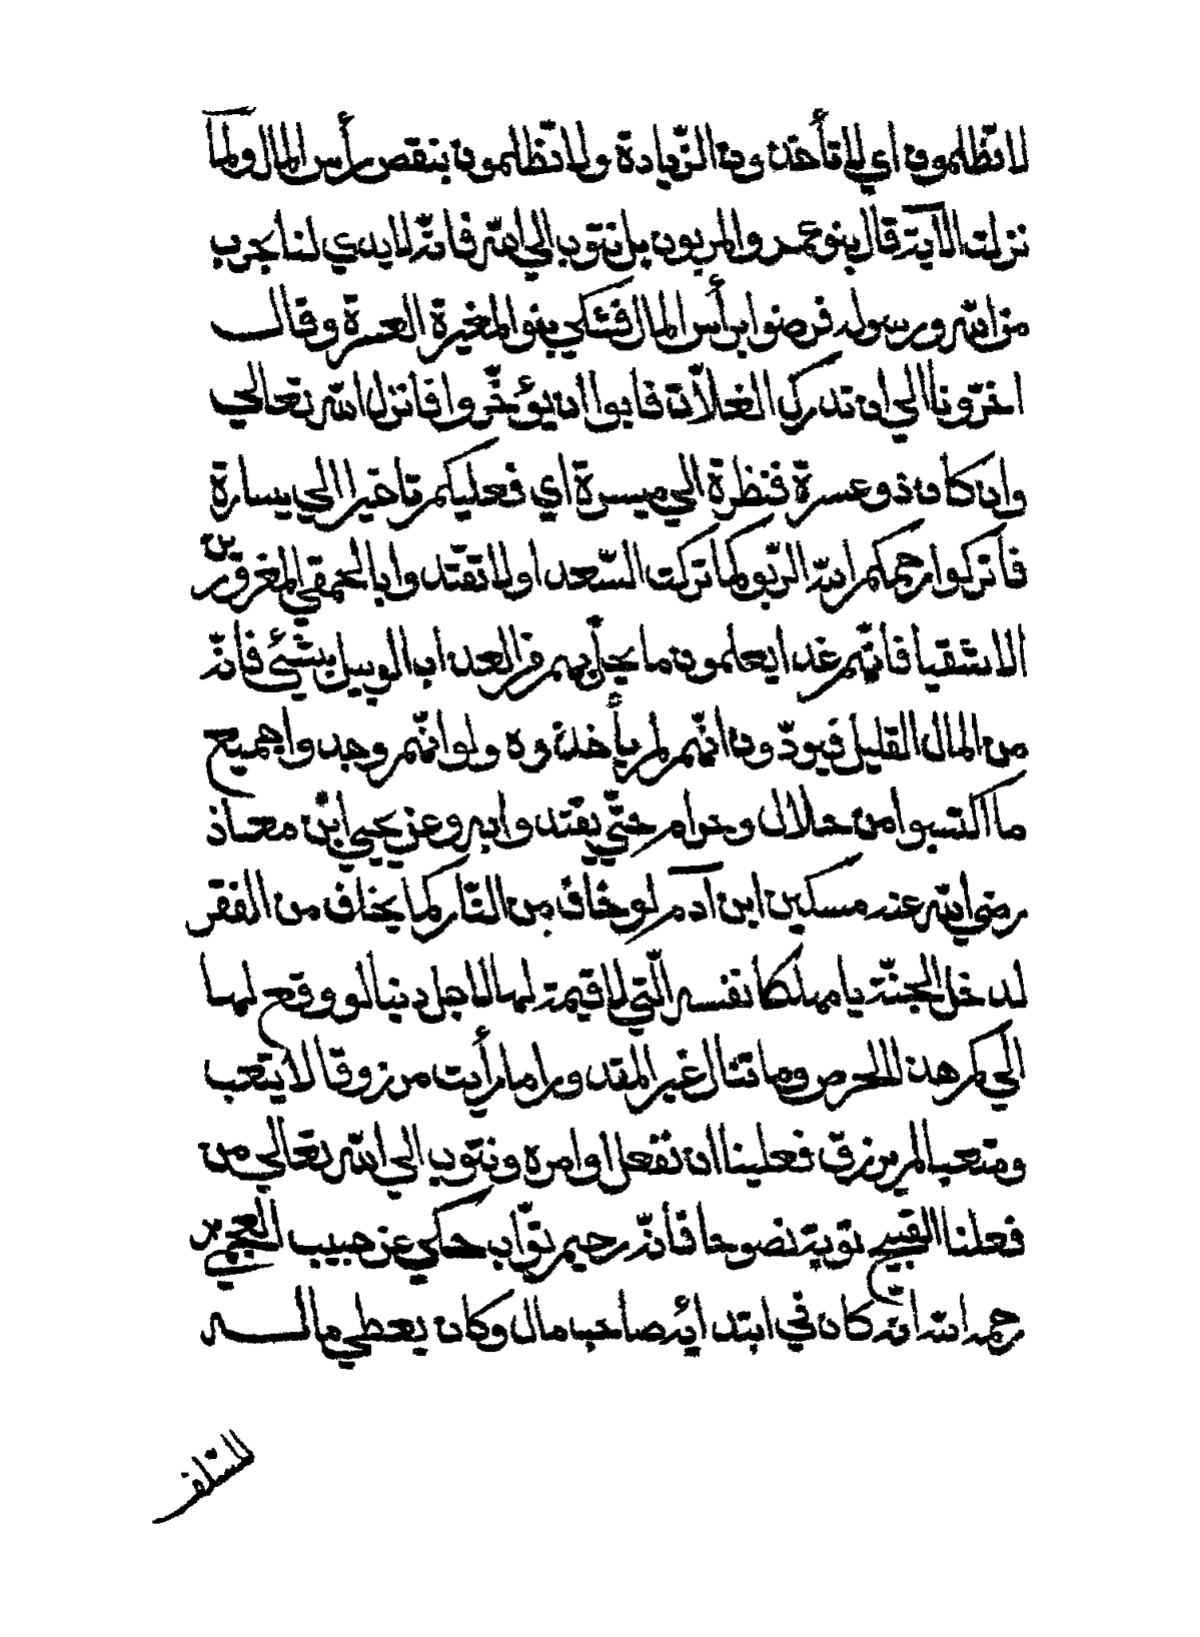 لا تظلمون اي لا تأخذون الزّيادة ولا تظلمون بنقص رأس المال ولمّا
نزلت الآية قال بنو عمرو المربون بل نتوب الي الله فانّه لا يدي لنا بحرب
من الله ورسوله فرضوا برأس المال فشكي بنو المغيرة العسرة وقالـــ
اخرّونا الي ان تدرك الغلّات فابوا ان يؤخّروا فانزل الله تعالي
وان كان ذو عسرة فنظرة الي ميسرة اي فعليكم تاخيرا الي يسارة
فاتركوا رحمكم الله الربّو كما تركت السّعداو لا تقتدوا بالحمقي المغرورين
الاشقيا فانّهم غدا يعلمون ما يحلّ بهم من العذاب الوبيل بشئ فانّه
من المال القليل فيودّون انّهم لم يأخذوه ولو انّهم وجدوا جميع
ما اكتسبوا من حلال وحرام حتّي يفتدوا به وعن يحيي ابن معاذ
رضي الله عنه مسكين ابن آدم لو خاف من النّار كما يخاف من الفقر
لدخل الجنّة يا مهلكا نفسه الّتي لا قيمة لها لاجل دنيا لو وقع لها
الي كم هذا الحرص وما تنال غير المقدور اما رأيت مرزوقا لا يتعب
ومتعب لم يرزق فعلينا ان نفعل اوامره ونتوب الي الله تعالي من
فعلنا القبيح توبة نصوحا فأنّه رحيم توّاب حكي عن حبيب العجميّ
رحمه الله انّه كان في ابتدائه صاحب مال وكان يعطي مالـــه
للسّلف